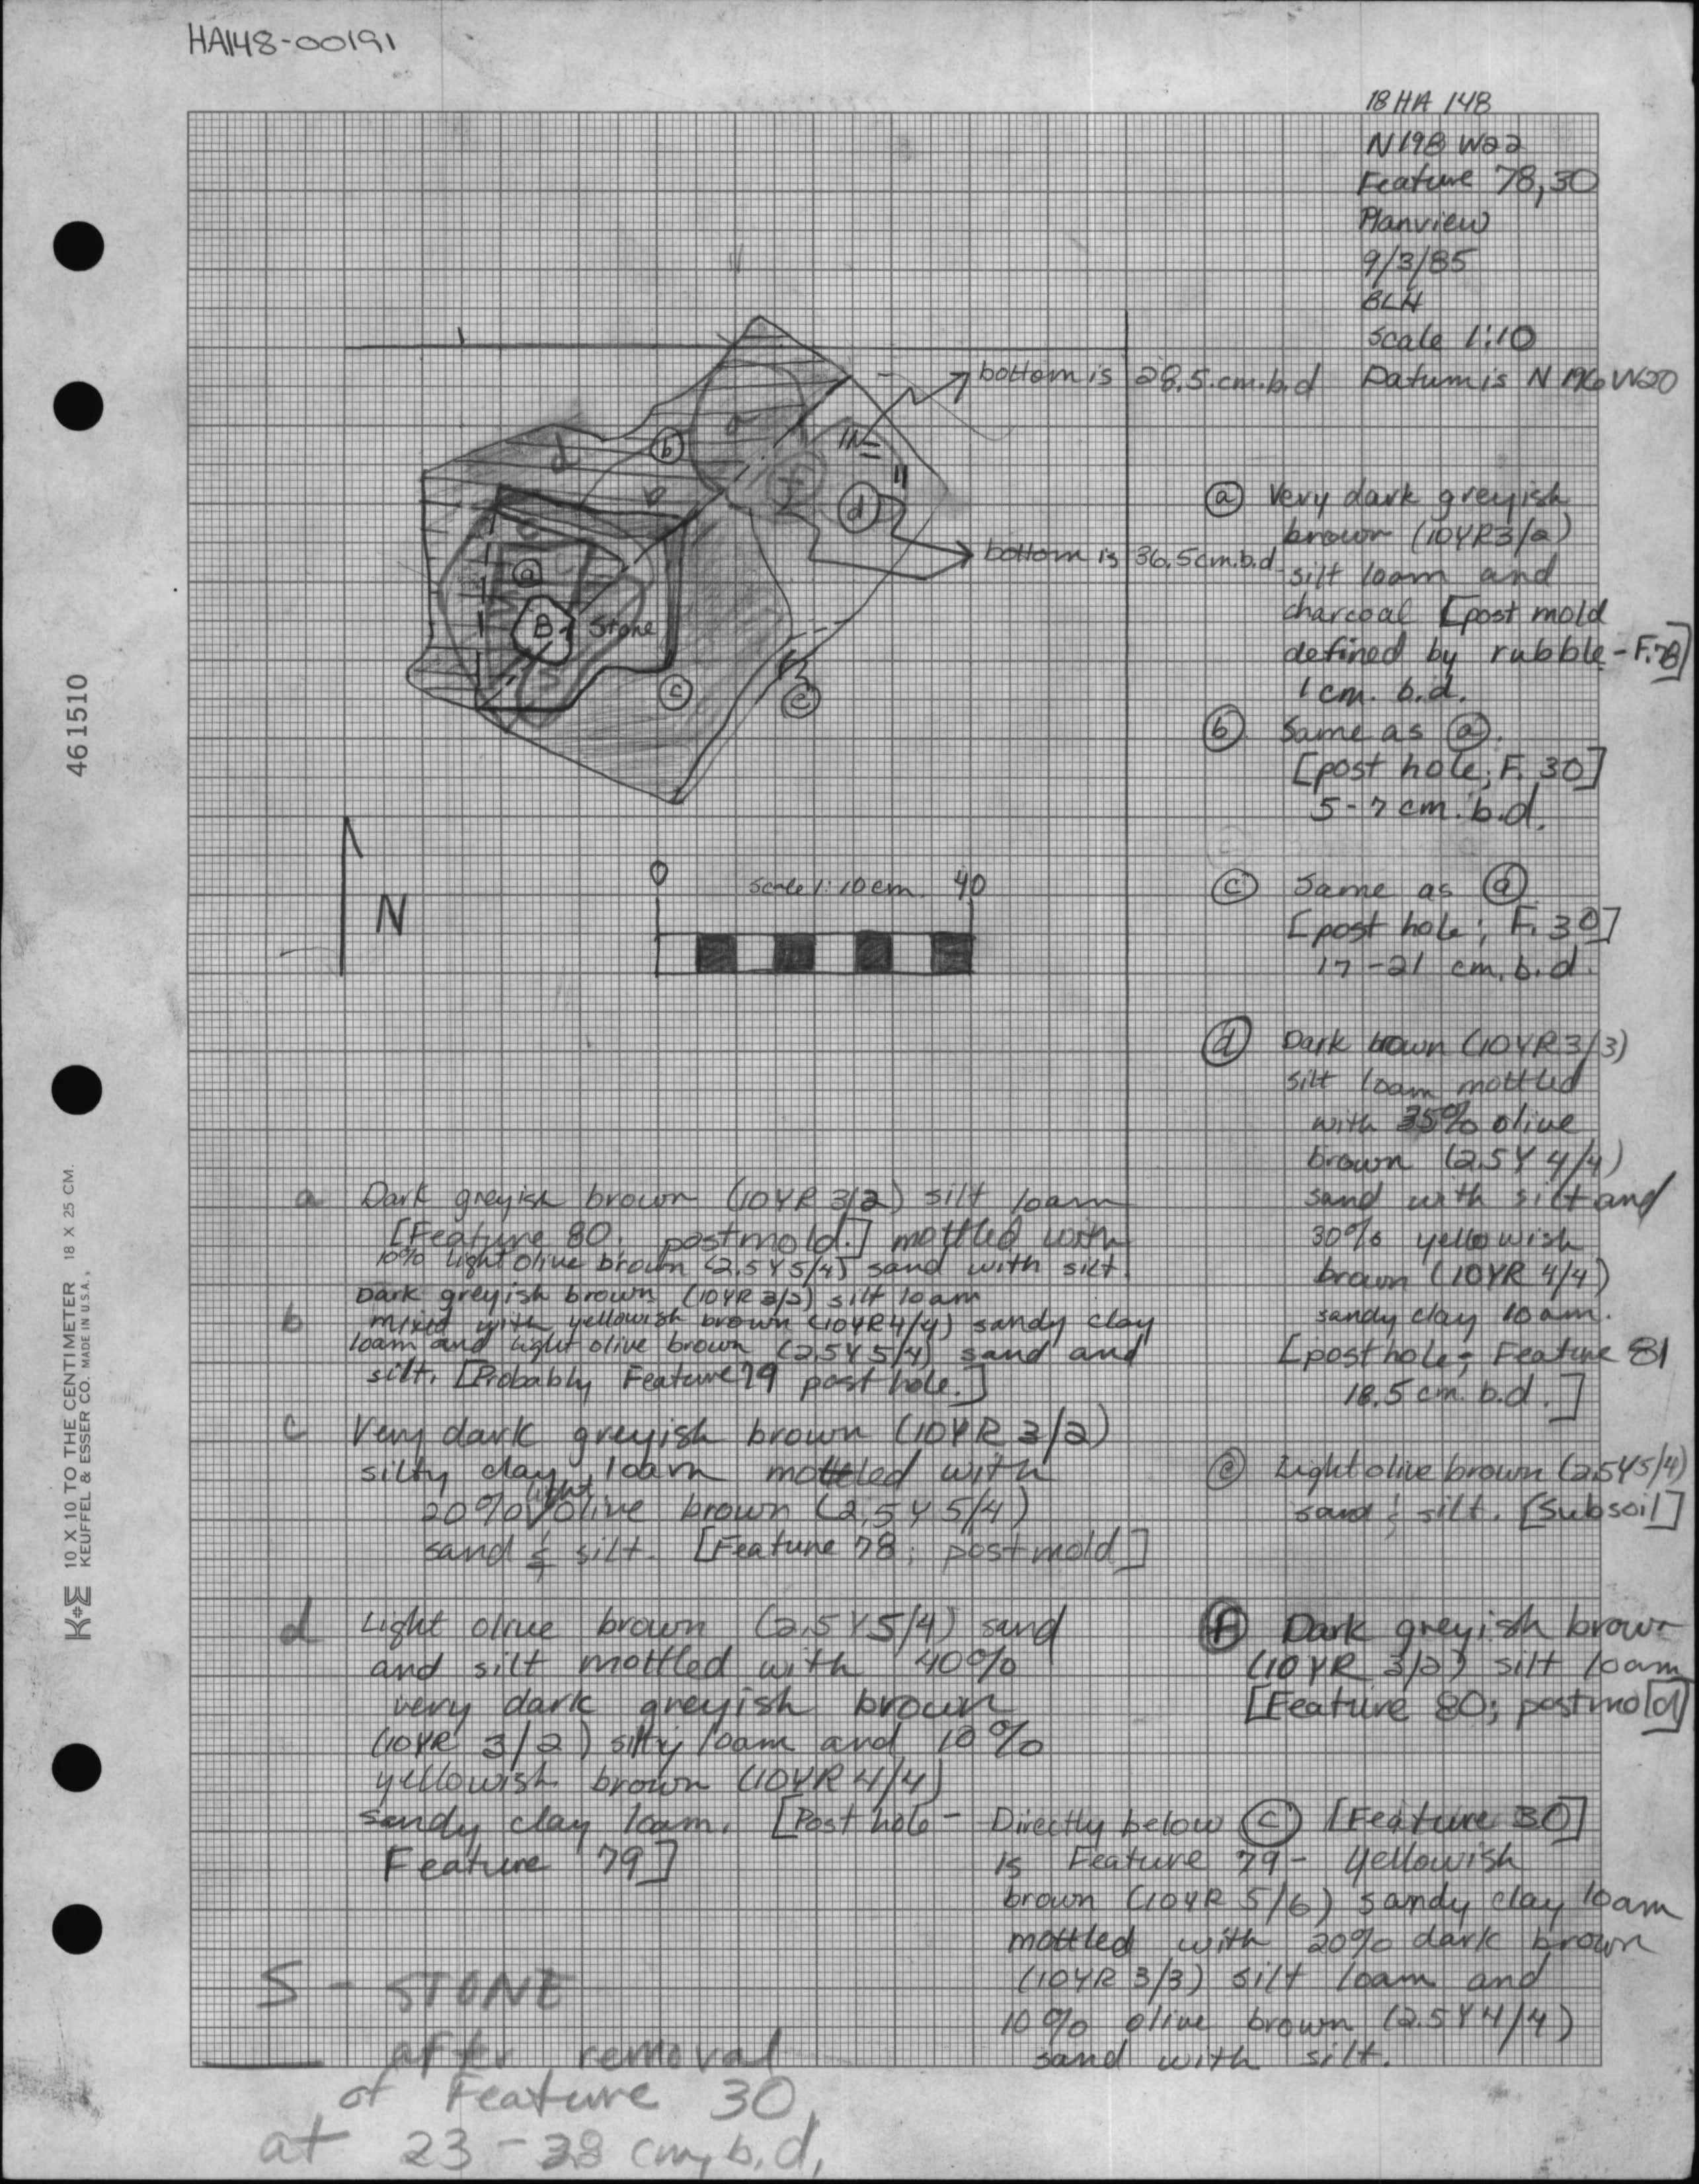 HA148-00191
18 HA 148
N198 W22
Feature 78,30
Planview
9/3/85
BLH
scale 1:10
Datum is N 196 W20
bottom is 28.5.cm.b.d
b
d
f
d
bottom is 36.5cm.b.d
a
B Stone
c
e
N
0 scale 1:10 cm. 40
461510
K+E 10 X 10 TO THE CENTIMETER 18 X 25 CM.
KEUFFEL & ESSER CO. MADE IN U.S.A.
a Very dark greyish
brown (10YR3/2)
silt loam and
charcoal [post mold
defined by rubble - F.78]
1 cm. b.d.
b Same as a.
[post hole; F. 30]
5-7 cm. b.d.
c Same as a
[post hole; F. 30]
17-21 cm. b.d.
d Dark brown (10YR3/3)
silt loam mottled
with 35% olive
brown (2.5Y 4/4)
sand with silt and
30% yellowish
brown (10YR 4/4)
sandy clay loam.
[posthole; Feature 81
18.5 cm. b.d.]
e Light olive brown (2.5Y5/4)
sand & silt. [Subsoil]
f Dark greyish brown
(10YR 3/2) silt loam
[Feature 80; postmold]
a Dark greyish brown (10YR 3/2) silt loam
[Feature 80. postmold.] mottled with
10% light olive brown (2.5Y5/4) sand with silt.
b Dark greyish brown (10YR 3/2) silt loam
mixed with yellowish brown (10YR4/4) sandy clay
loam and light olive brown (2.5Y5/4) sand and
silt. [Probably Feature 79 post hole.]
c Very dark greyish brown (10YR 3/2)
silty clay loam mottled with
20% light olive brown (2.5Y 5/4)
sand & silt. [Feature 78; postmold]
d Light olive brown (2.5Y5/4) sand
and silt mottled with 40%
very dark greyish brown
(10YR 3/2) silty loam and 10%
yellowish brown (10YR 4/4)
sandy clay loam. [Post hole -
Feature 79]
Directly below c [Feature 30]
is Feature 79- Yellowish
brown (10YR 5/6) sandy clay loam
mottled with 20% dark brown
(10YR 3/3) silt loam and
10% olive brown (2.5Y4/4)
sand with silt.
S - STONE
after removal
of Feature 30
at 23-28 cm. b.d.